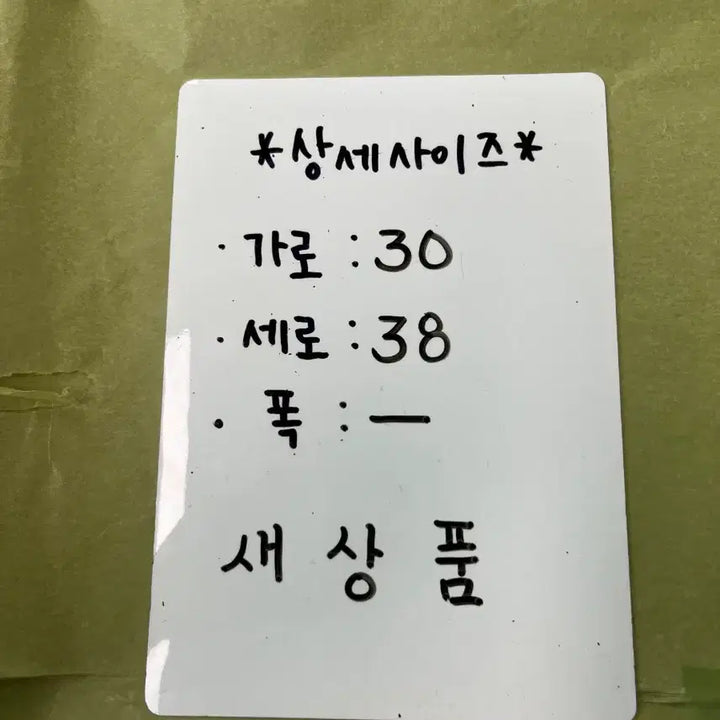 *상세사이즈*
· 가로 : 30
· 세로 : 38
· 폭 : —
새 상 품